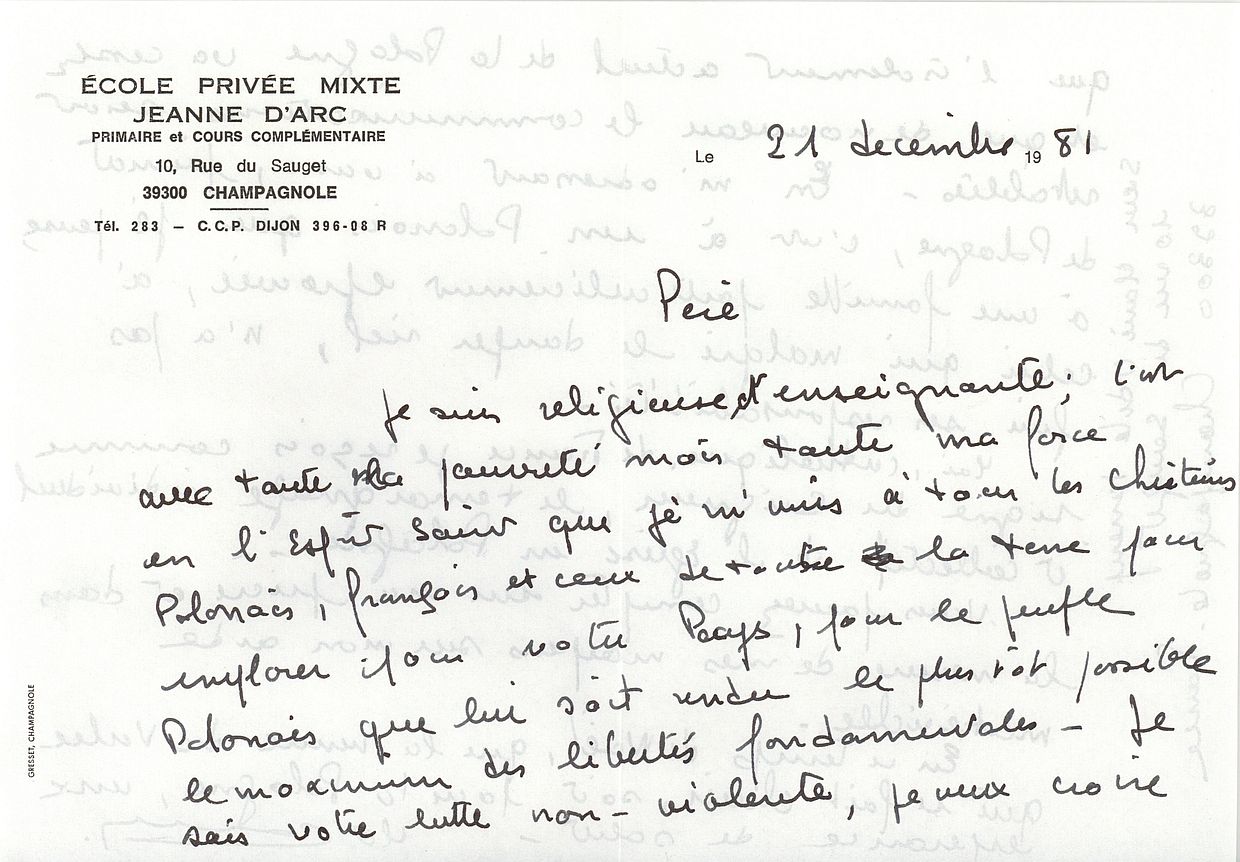 ÉCOLE PRIVÉE MIXTE
JEANNE D'ARC
PRIMAIRE et COURS COMPLÉMENTAIRE
10, Rue du Sauget
39300 CHAMPAGNOLE
Tél. 283 — C.C.P. DIJON 396-08 R
Le 21 decembre 19 81
Père
Je suis religieuse enseignante, c'est
avec toute ma pauvreté mais toute ma force
en l'Esprit Saint que je m'unis à tous les chrétiens
Polonais, français et ceux de toute la terre pour
implorer pour votre Pays, pour le peuple
Polonais que lui soit rendu le plus tôt possible
le maximum des libertés fondamentales - Je
sais votre lutte non-violente, je veux croire
GRESSET, CHAMPAGNOLE